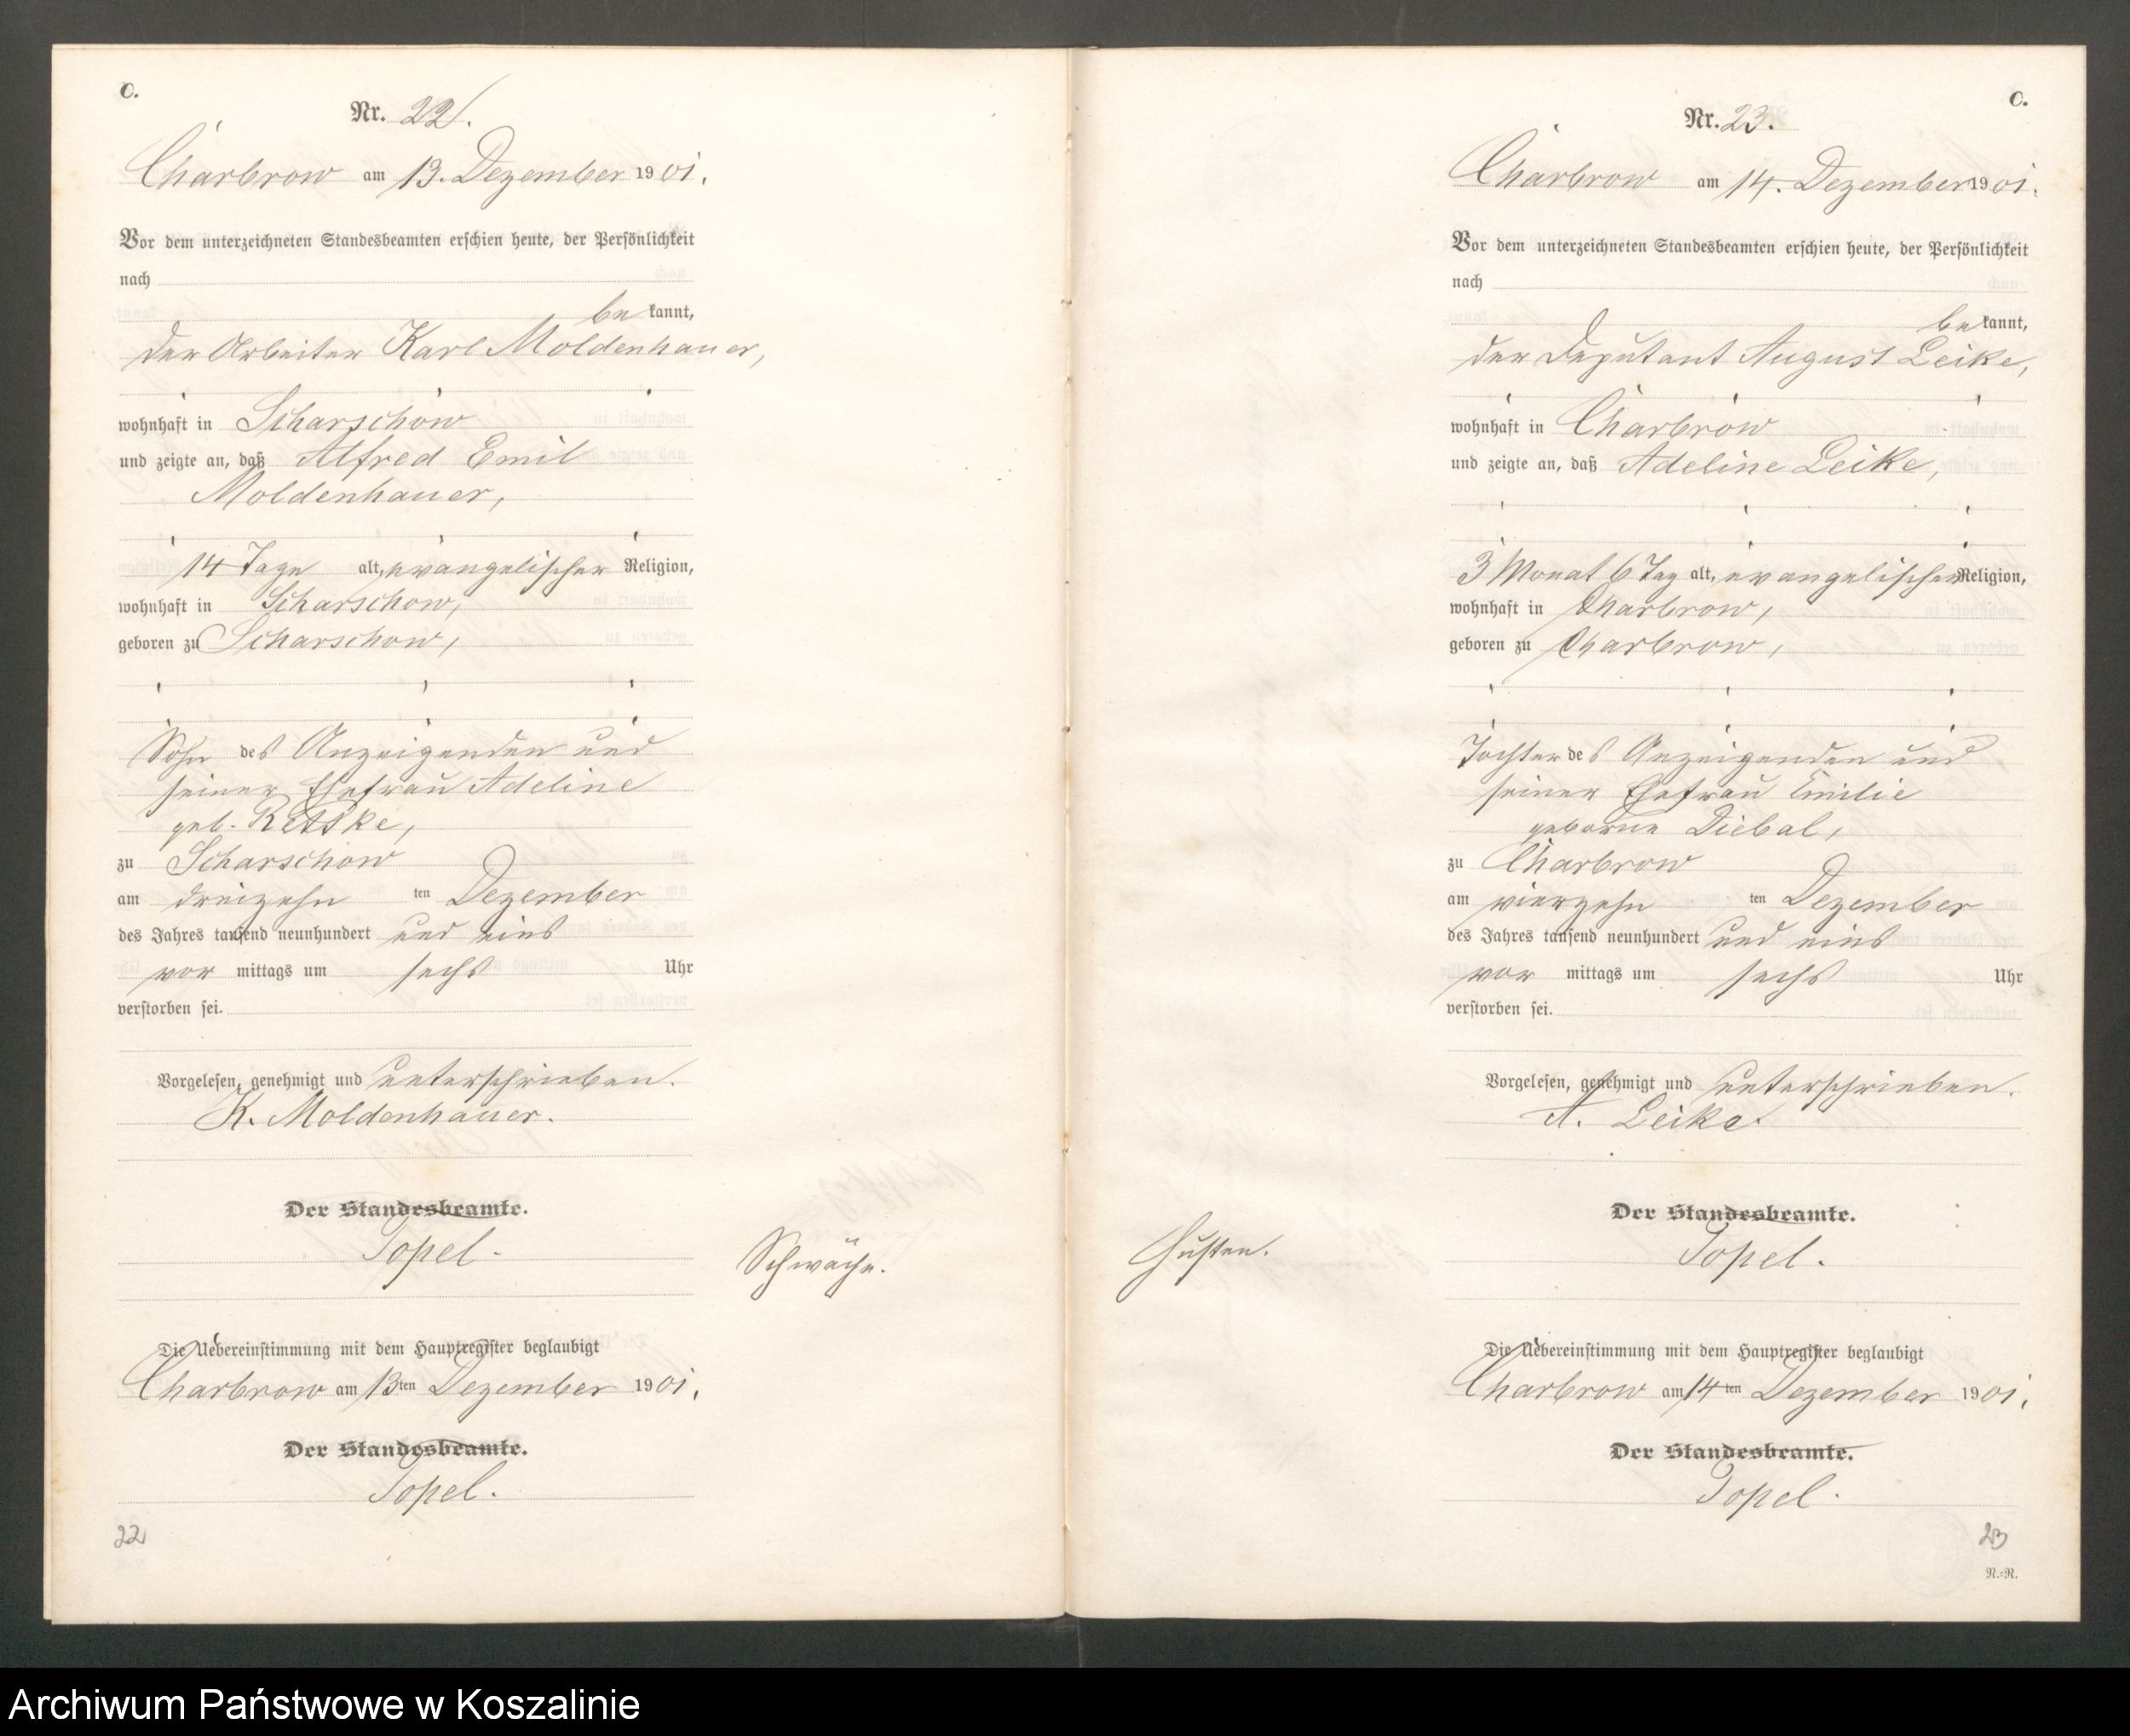 C.
Nr. 22.
Charbrow am 13. Dezember 1901.
Vor dem unterzeichneten Standesbeamten erschien heute, der Persönlichkeit
nach
be kannt,
der Arbeiter Karl Moldenhauer,
wohnhaft in Scharschow
und zeigte an, daß Alfred Emil
Moldenhauer,
14 Tage alt, evangelischer Religion,
wohnhaft in Scharschow,
geboren zu Scharschow,
Sohn des Anzeigenden und
seiner Ehefrau Adeline
geb.
zu Scharschow
am dreizehn ten Dezember
des Jahres tausend neunhundert und eins
vor mittags um sechs Uhr
verstorben sei.
Vorgelesen, genehmigt und unterschrieben.
K. Moldenhauer.
Der Standesbeamte.
Topel.
Schwäche.
Die Uebereinstimmung mit dem Hauptregister beglaubigt
Charbrow am 13ten Dezember 1901.
Der Standesbeamte.
Topel.
22
C.
Nr. 23.
Charbrow am 14. Dezember 1901.
Vor dem unterzeichneten Standesbeamten erschien heute, der Persönlichkeit
nach
be kannt,
der Deputant August Leike,
wohnhaft in Charbrow
und zeigte an, daß Adeline Leike,
3 Monat 6 Tag alt, evangelischer Religion,
wohnhaft in Charbrow,
geboren zu Charbrow,
Tochter des Anzeigenden und
seiner Ehefrau Emilie
geborne Diebal,
zu Charbrow
am vierzehn ten Dezember
des Jahres tausend neunhundert und eins
vor mittags um sechs Uhr
verstorben sei.
Vorgelesen, genehmigt und unterschrieben.
A. Leike.
Der Standesbeamte.
Topel.
Husten.
Die Uebereinstimmung mit dem Hauptregister beglaubigt
Charbrow am 14ten Dezember 1901.
Der Standesbeamte.
Topel.
23
N.-N.
Archiwum Państwowe w Koszalinie